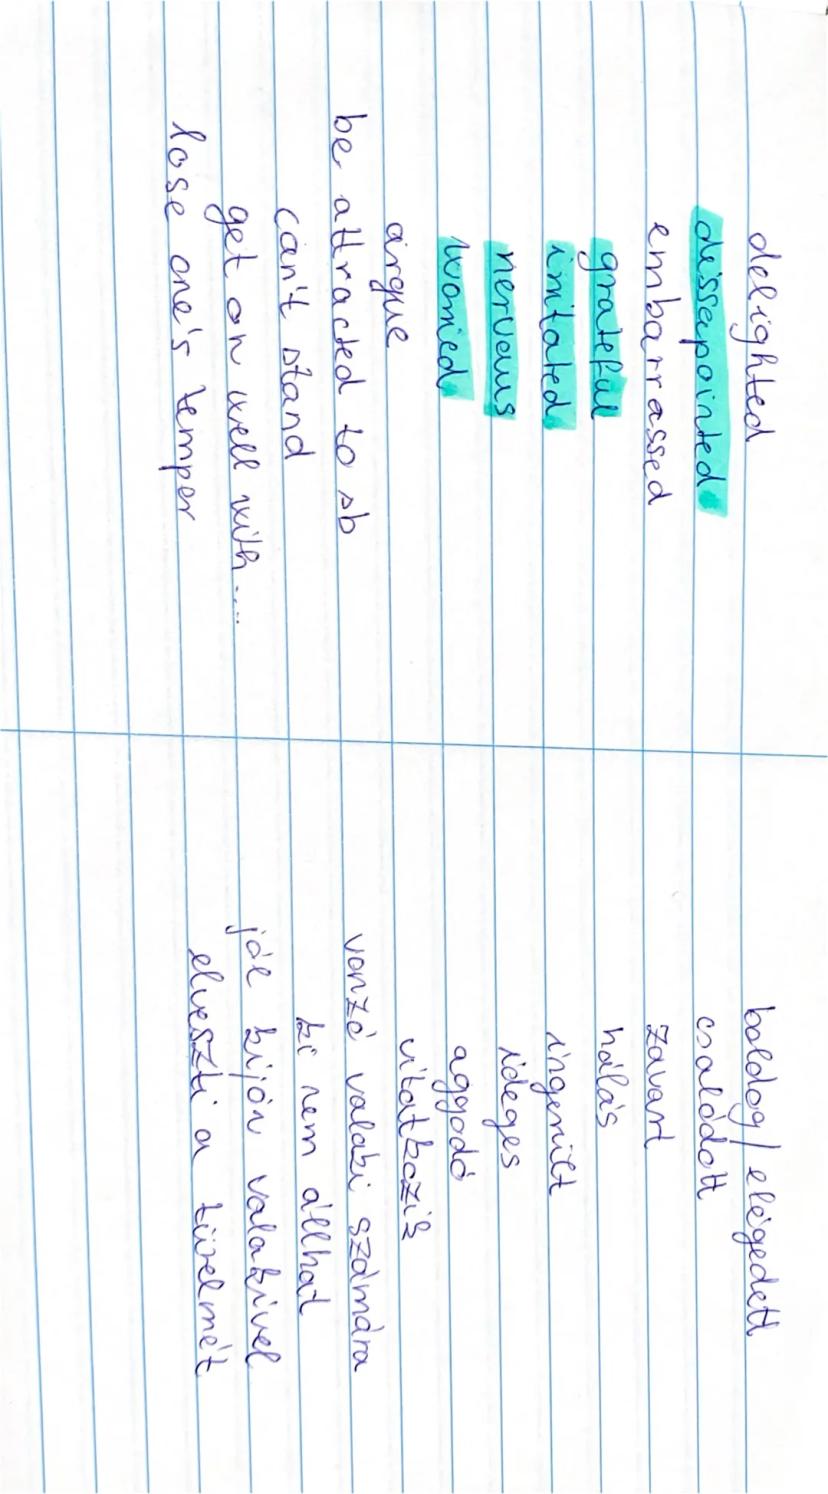 delighted boldog / elégedett
dissapointed csalódott
embarrassed zavart
grateful hálás
irritated ingerült
nervous ideges
worried aggodó
argue vitatkozik
be attracted to sb vonzó valaki számára
can't stand ki nem állhat
get on well with... jól kijön valakivel
lose one's temper elveszti a türelmét